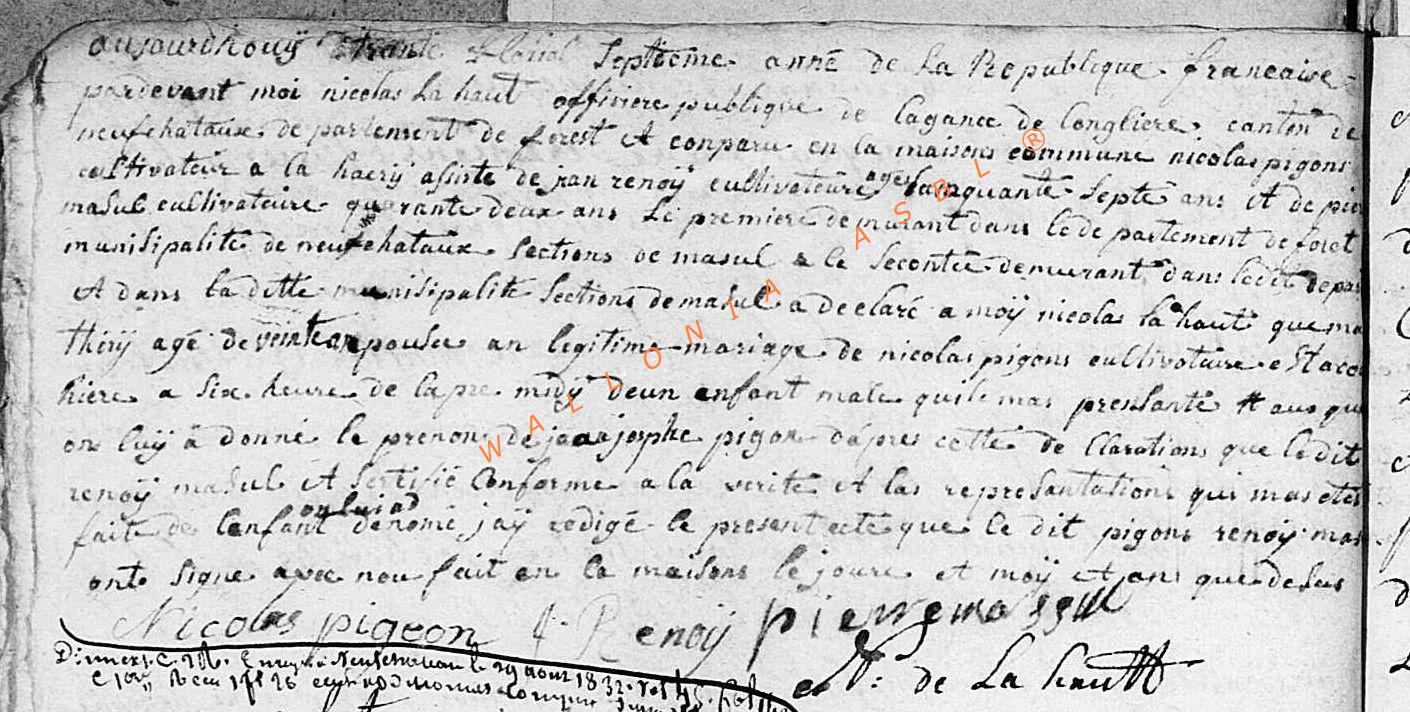 aujourdhouÿ trante floriol Septieme anné de la Republique francaise
pardevant moi nicolas la haut offisiere publique de lagance de longliere canton de
neufchataux de partement de forest et conparu en la maisons commune nicolas pigons
cultivateur a la haerÿ asisté de jean renoÿ cultivateure agé sainquante Septe ans et de pier
masul cultivatoire quarante deux ans le premiere demurant dans le de partement de foret
munisipalité de neufchataux Sections de masul & le Secontee demeurant dans ledit depar
et dans la ditte munisipalité Sections de masul a declaré a moÿ nicolas la haut que ma
thirÿ agé de veinte an epousee an legitime mariage de nicolas pigons cultivatoire est acou
hiere a six heure de lapre midÿ deun enfant male quil mas pressanté et auquel
on luÿ a donné le prenom de jean josphe pigon dapres cette de Clarations que le dit
renoÿ masul et Sertifié Conforme a la verité et las represantations qui mas etes
faite de lenfant on lui ad denomé jaÿ redigé le present acte que le dit pigons renoÿ mas
ont signe avec nou fait en la maisons le joure et moÿ et an que desus
Nicolas pigeon J. Renoÿ pierre massul
N: de La hautt
W A L L O N I A A S B L ®